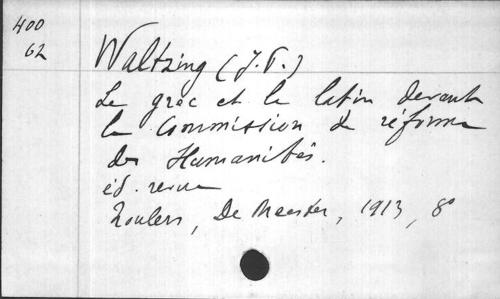 400
62
Waltzing (J. P.)
Le grec et le latin devant
la Commission de réforme
des Humanités.
éd. revue
Roulers, De Meester, 1913, 8°